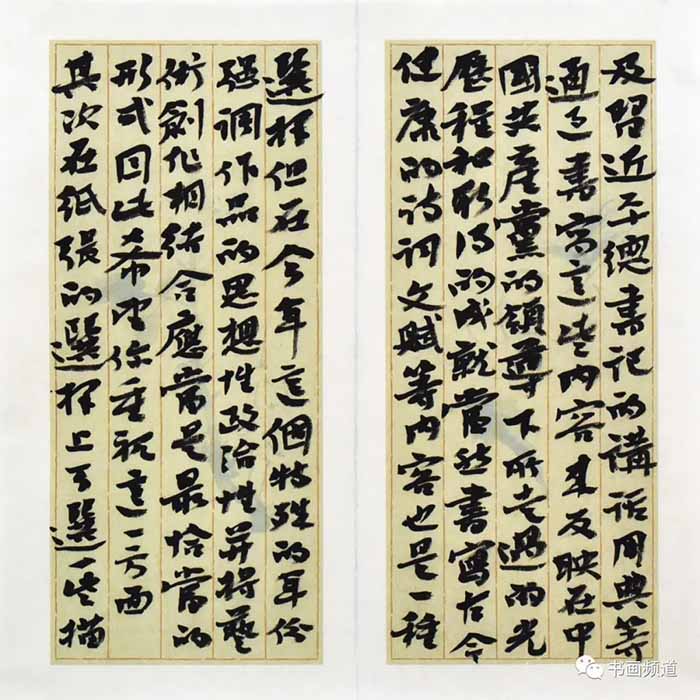 及習近平總書記的講話用典等
通過書寫這些内容來反映在中
國共産黨的領導下所走過的光
歷程和取得的成就當然書寫古今
健康的詩詞文賦等内容也是一種
選擇但在今年這個特殊的年份
强調作品的思想性政治性并將藝
術創作相結合應當是最恰當的
形式因此希望你重視這一方面
其次在紙張的選擇上可選一些描
书画频道